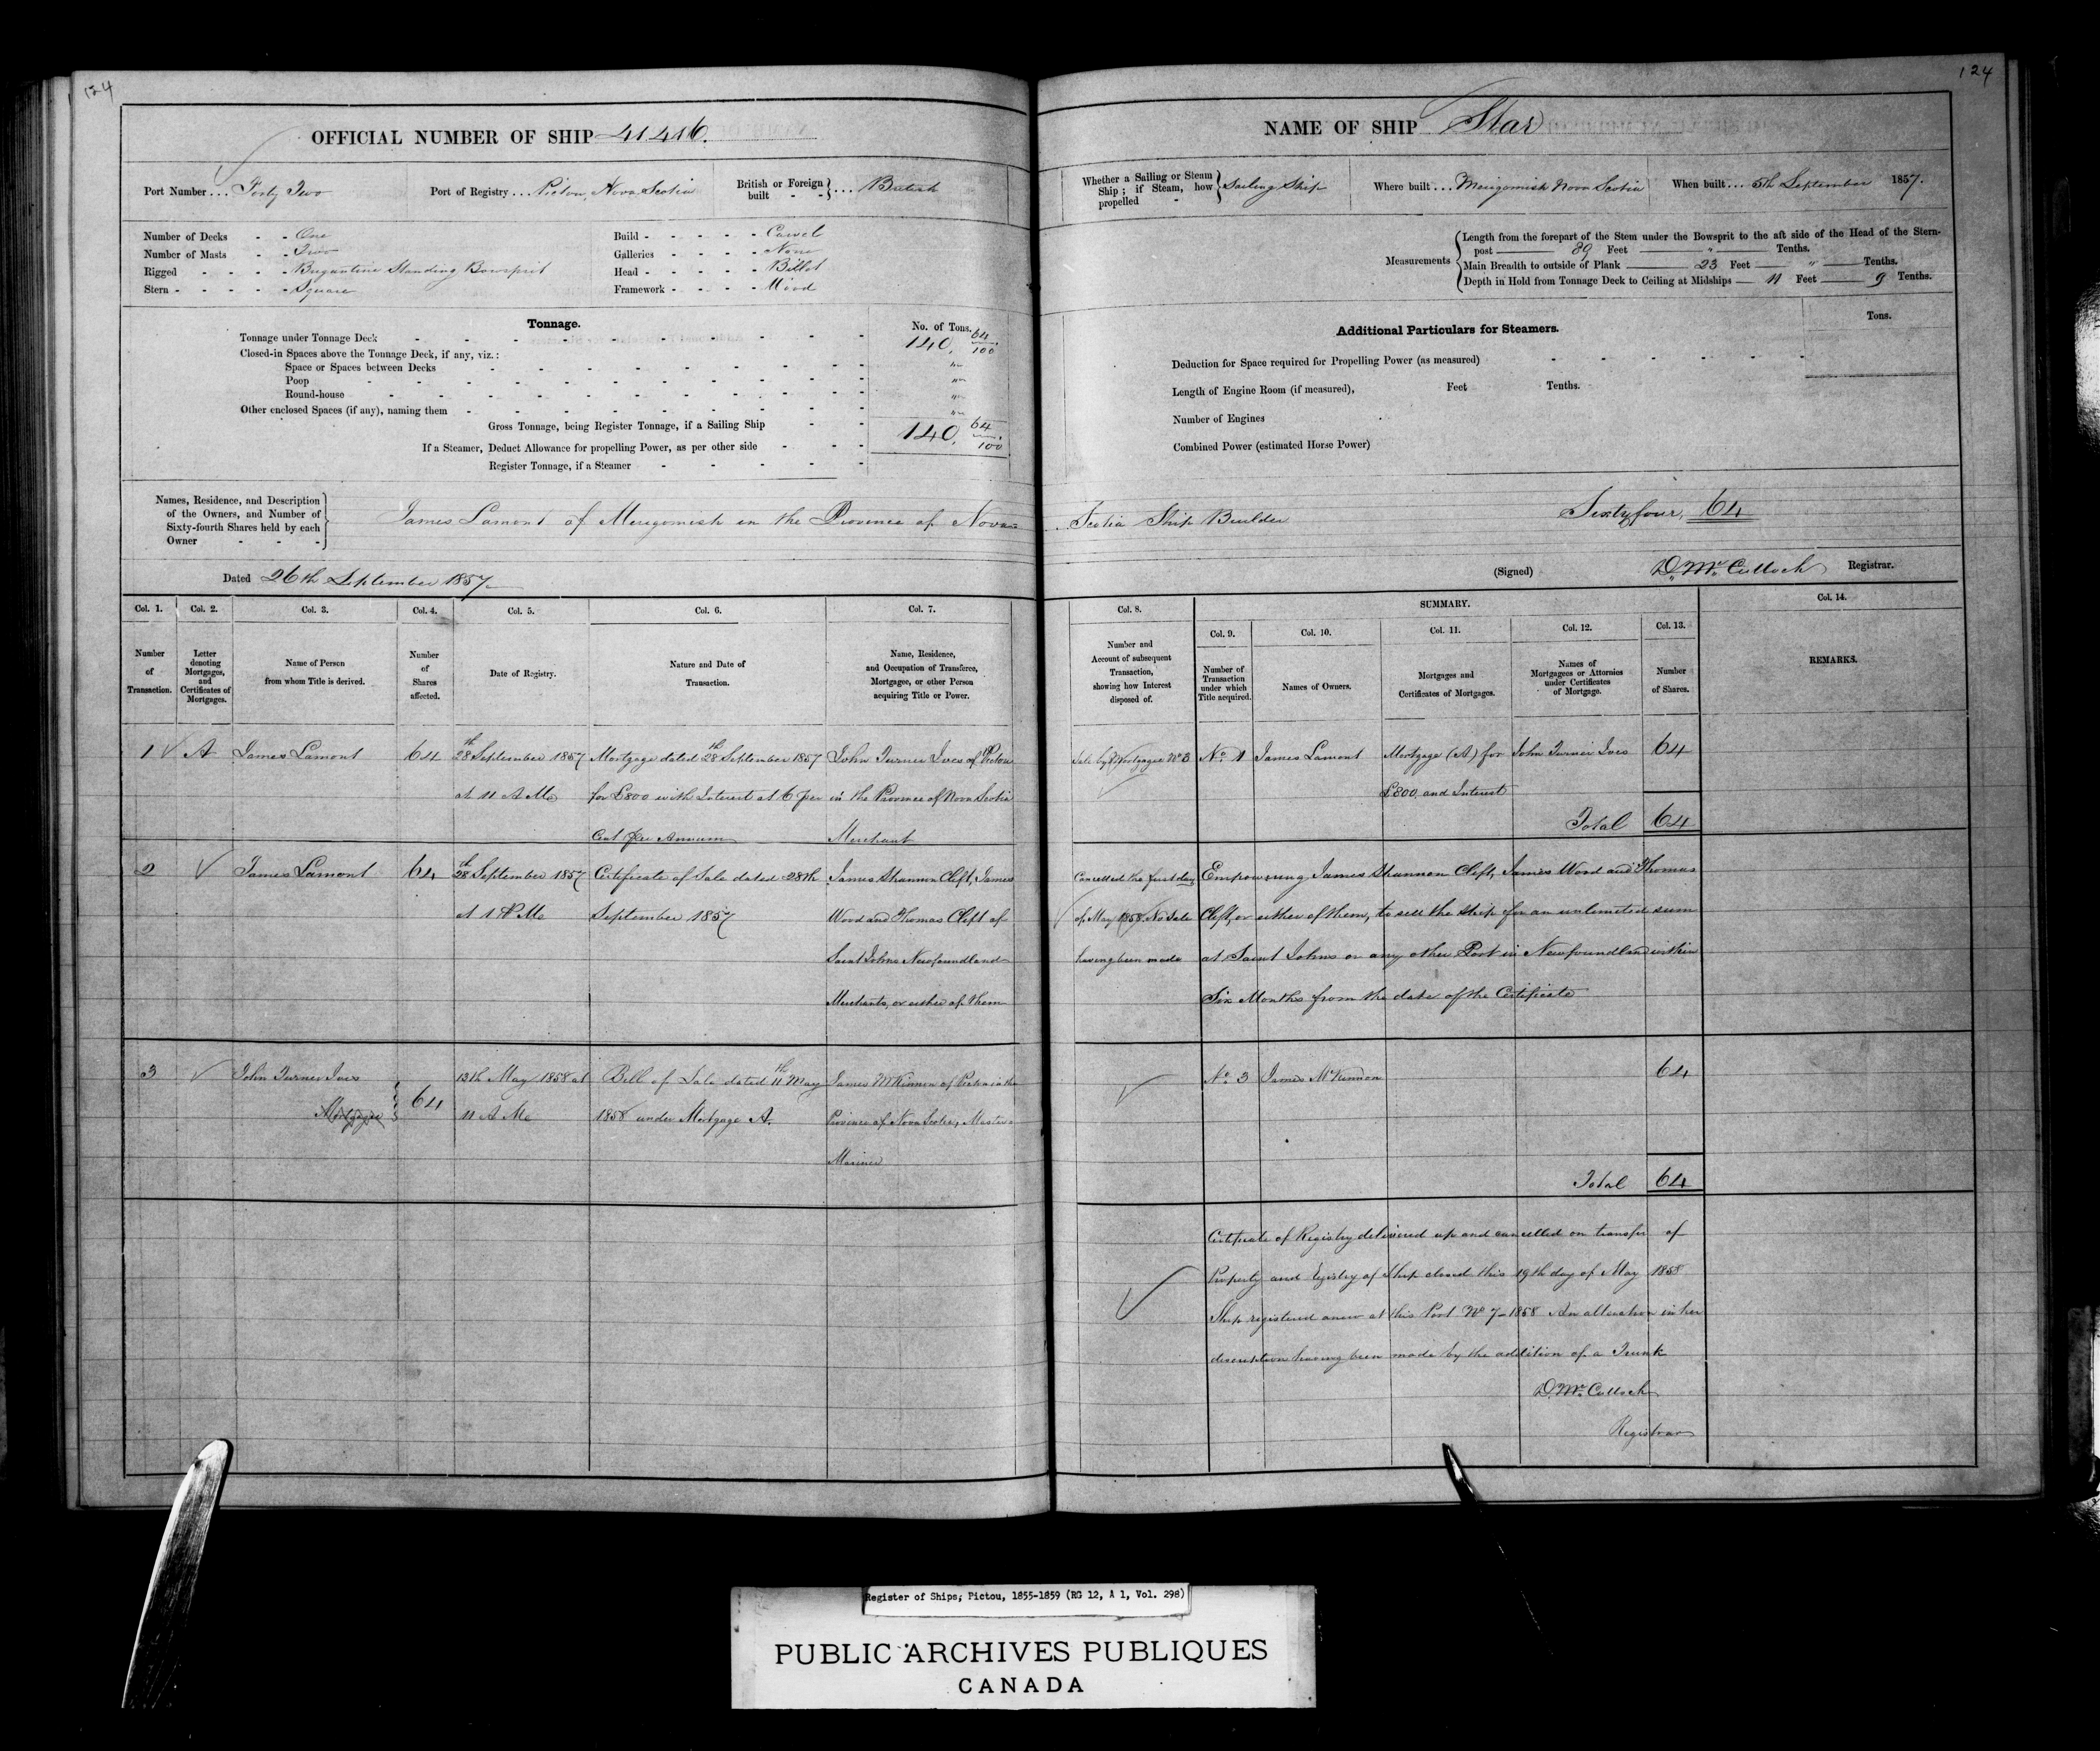 124
OFFICIAL NUMBER OF SHIP 41.416.
Port Number ... Forty Two
Port of Registry ... Pictou, Nova Scotia
British or Foreign built - - } ... British
Number of Decks - - One
Number of Masts - - Two
Rigged - - - - Brigantine Standing Bowsprit
Stern - - - - - Square
Build - - - - - Carvel
Galleries - - - - None
Head - - - - - Billet
Framework - - - - Wood
Tonnage.
No. of Tons.
Tonnage under Tonnage Deck 140. 64/100
Closed-in Spaces above the Tonnage Deck, if any, viz.:
Space or Spaces between Decks "
Poop "
Round-house "
Other enclosed Spaces (if any), naming them "
Gross Tonnage, being Register Tonnage, if a Sailing Ship 140. 64/100
If a Steamer, Deduct Allowance for propelling Power, as per other side
Register Tonnage, if a Steamer
124
NAME OF SHIP Star
Whether a Sailing or Steam Ship; if Steam, how propelled - } Sailing Ship
Where built ... Merigomish Nova Scotia
When built ... 5th September 1857.
Measurements
Length from the forepart of the Stem under the Bowsprit to the aft side of the Head of the Stern-
post 89 Feet " Tenths.
Main Breadth to outside of Plank 23 Feet " Tenths.
Depth in Hold from Tonnage Deck to Ceiling at Midships 11 Feet 9 Tenths.
Additional Particulars for Steamers.
Tons.
Deduction for Space required for Propelling Power (as measured)
Length of Engine Room (if measured), Feet Tenths.
Number of Engines
Combined Power (estimated Horse Power)
Names, Residence, and Description
of the Owners, and Number of
Sixty-fourth Shares held by each
Owner - - -
James Lamont of Merigomish in the Province of Nova Scotia Ship Builder Sixty four, 64
Dated 26th September 1857
(Signed) D. McCulloch Registrar.
Col. 1.
Number of Transaction.
Col. 2.
Letter denoting Mortgages, and Certificates of Mortgages.
Col. 3.
Name of Person from whom Title is derived.
Col. 4.
Number of Shares affected.
Col. 5.
Date of Registry.
Col. 6.
Nature and Date of Transaction.
Col. 7.
Name, Residence, and Occupation of Transferee, Mortgagee, or other Person acquiring Title or Power.
Col. 8.
Number and Account of subsequent Transaction, showing how Interest disposed of.
SUMMARY.
Col. 9.
Number of Transaction under which Title acquired.
Col. 10.
Names of Owners.
Col. 11.
Mortgages and Certificates of Mortgages.
Col. 12.
Names of Mortgagees or Attornies under Certificates of Mortgage.
Col. 13.
Number of Shares.
Col. 14.
REMARKS.
1 A James Lamont 64 28th September 1857 Mortgage dated 28th September 1857 John Turner Ives of Pictou
at 11 A M for £800 with Interest at 6 per in the Province of Nova Scotia
Cent per Annum Merchant
Sale by Mortgagee No 3 No. 1 James Lamont Mortgage (A) for John Turner Ives 64
£800 and Interest
Total 64
2 James Lamont 64 28th September 1857 Certificate of Sale dated 28th James Shannon Clift, James
at 1 P M September 1857 Wood and Thomas Clift of
Saint Johns Newfoundland
Merchants, or either of them
Cancelled the first day Empowering James Shannon Clift, James Wood and Thomas
of May 1858 No Sale Clift, or either of them, to sell the Ship for an unlimited sum
having been made at Saint Johns or any other Port in Newfoundland within
Six Months from the date of the Certificate
3 John Turner Ives 64 13th May 1858 at Bill of Sale dated 11th May James McKinnon of Pictou in the
Mortgagee 11 A M 1858 under Mortgage A. Province of Nova Scotia, Master
Mariner
No. 3 James McKinnon 64
Total 64
Certificate of Registry delivered up and cancelled on transfer of
Property and Registry of Ship closed this 19th day of May 1858
Ship registered anew at this Port No 7-1858 An alteration in her
description having been made by the addition of a Trunk
D. McCulloch
Registrar
Register of Ships; Pictou, 1855-1859 (RG 12, A 1, Vol. 298)
PUBLIC ARCHIVES PUBLIQUES
CANADA